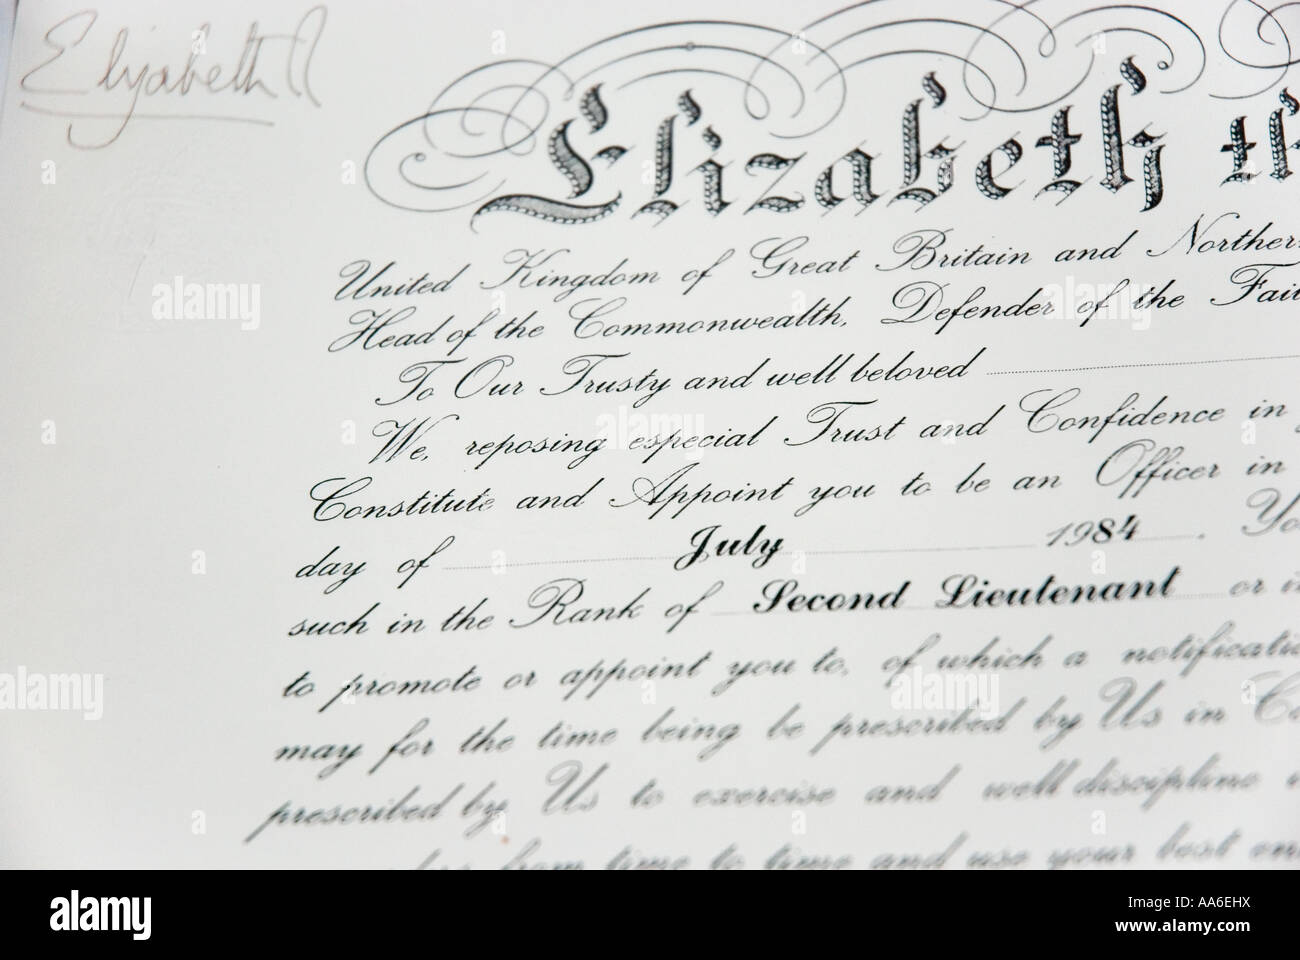 Elizabeth R
Elizabeth th
United Kingdom of Great Britain and Northern
Head of the Commonwealth, Defender of the Fai
To Our Trusty and well beloved
We, reposing especial Trust and Confidence in
Constitute and Appoint you to be an Officer in
day of July 1984. Yo
such in the Rank of Second Lieutenant or in
to promote or appoint you to, of which a notificatio
may for the time being be prescribed by Us in Co
prescribed by Us to exercise and well discipline
from time to time and use your best en
alamy
Image ID: A A6EHX
www.alamy.com